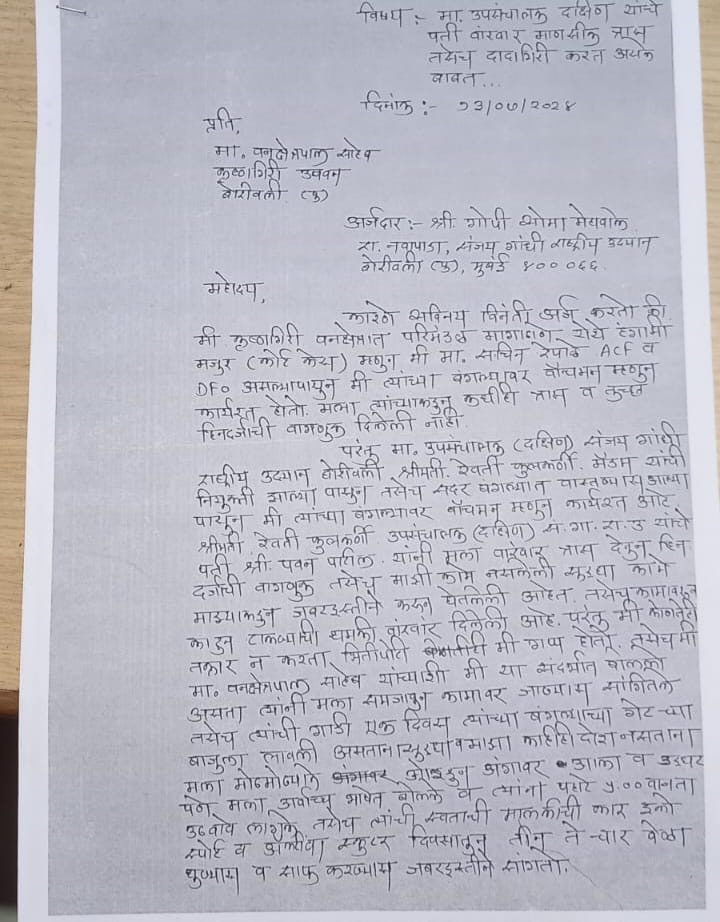 विषय :- मा. उपसंचालक दक्षिण यांचे
पती वारंवार मानसीक त्रास
तसेच दादागिरी करत असले
बाबत...
दिनांक :- 23/07/2024
प्रति,
मा. वनक्षेत्रपाल साहेब
कृष्णगिरी उपवन
बोरीवली (पु)
अर्जदार :- श्री. गोपी सोमा मेघवाले
रा. नवापाडा, संजय गांधी राष्ट्रीय उद्यान
बोरीवली (पु), मुंबई ४०० ०६६.
महोदय,
कारणे सविनय विनंती अर्ज करतो की,
मी कृष्णगिरी वनक्षेत्रात परिमंडळ येथे हंगामी
मजुर (कोर्ट केस) म्हणुन मी मा. सचिन रेपाळ ACF व
DFO असल्यापासुन मी त्यांच्या बंगल्यावर वॉचमन म्हणुन
कार्यरत होतो. मला त्यांच्याकडुन कधीही त्रास व तुच्छ
हिनदर्जाची वागणुक दिलेली नाही.
परंतु मा. उपसंचालक (दक्षिण) संजय गांधी
राष्ट्रीय उद्यान बोरीवली श्रीमती. रेवती कुलकर्णी. मॅडम यांची
नियुक्ती झाल्या पासुन तसेच सदर बंगल्यात वास्तव्यास आल्या
पासुन मी त्यांच्या बंगल्यावर वॉचमन म्हणुन कार्यरत आहे.
श्रीमती. रेवती कुलकर्णी उपसंचालक (दक्षिण) सं.गा.रा.उ यांचे
पती श्री. पवन पाटिल. यांनी मला वारंवार त्रास देवुन हिन
दर्जाची वागणुक तसेच माझी काम नसलेली सुद्धा कामे
माझ्याकडुन जबरदस्तीने करुन घेतलेली आहेत. तसेच कामावरुन
काढुन टाकण्याची धमकी वारंवार दिलेली आहे. परंतु मी कोणतीही
तक्रार न करता भितीपोटी मी गप्प होतो. तसेच मी
मा. वनक्षेत्रपाल साहेब यांच्याशी मी या संदर्भात बोललो
असता त्यांनी मला समजावुन कामावर जाण्यास सांगितले
तसेच त्यांची गाडी एक दिवस त्यांच्या बंगल्याच्या गेट-च्या
बाजुला लावली असताना सुद्धा व माझा काहीही दोश नसताना
मला मोठमोठ्याने ओरडुन अंगावर आला व
पणे मला अर्वाच्च भाषेत बोलले व त्यांना पहाटे ५.०० वाजता
उठवावे लागले. तसेच त्यांची स्वताची मालकीची कार इको
स्पोर्ट व स्कुटर दिवसातुन तीन ते चार वेळा
धुण्यास व साफ करण्यास जबरदस्तीने सांगतो.